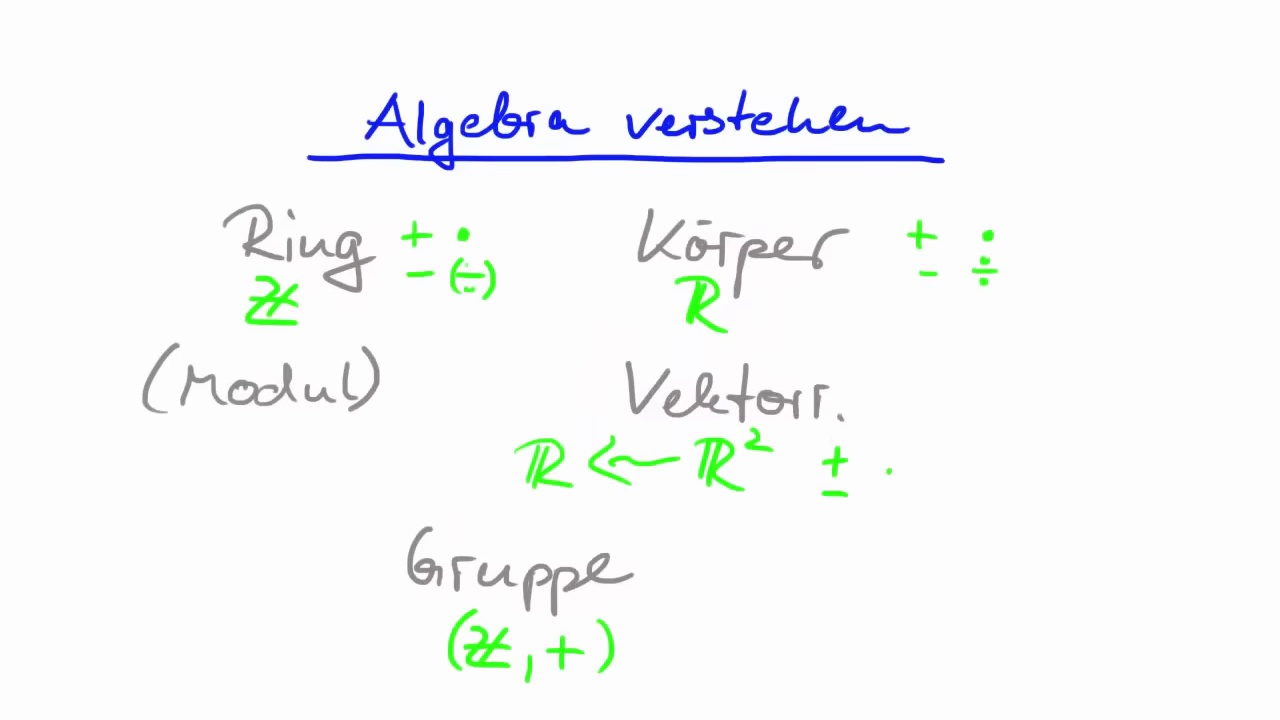 Algebra verstehen
Ring + · Körper + ·
− (÷) − ÷
ℤ ℝ
(Modul) Vektorr.
ℝ ← ℝ² ± ·
Gruppe
(ℤ, +)